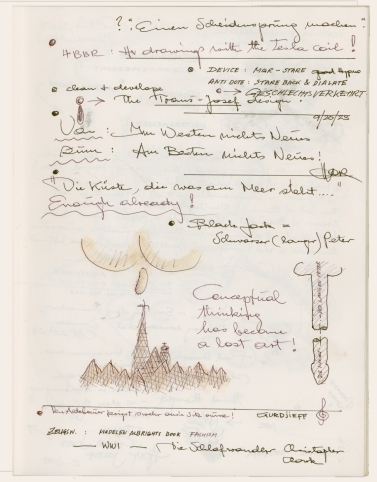 ? "Einen Scheidensprung machen"
4BBR : Hv drawings with the Tesla coil !
DEVICE : MQR - STARE
ANTI DOTE : STARE BACK & DIALATE
clean & develope
→ GESCHLECHTSVERKEHRT
→ The Trans-Josef design.
9/20/23
Von : Im Westen nichts Neues
zum : Am Besten nichts Neues!
"Die Küste, die was am Meer steht....
Enough already !
Black Jack =
Schwarzer (langer) Peter
Conceptual
thinking
has become
a lost art !
GURDJIEFF
MODELEN ALBRIGHTS DOOR FASHISM
WWI — Die Schlafwandler Christopher
Clark